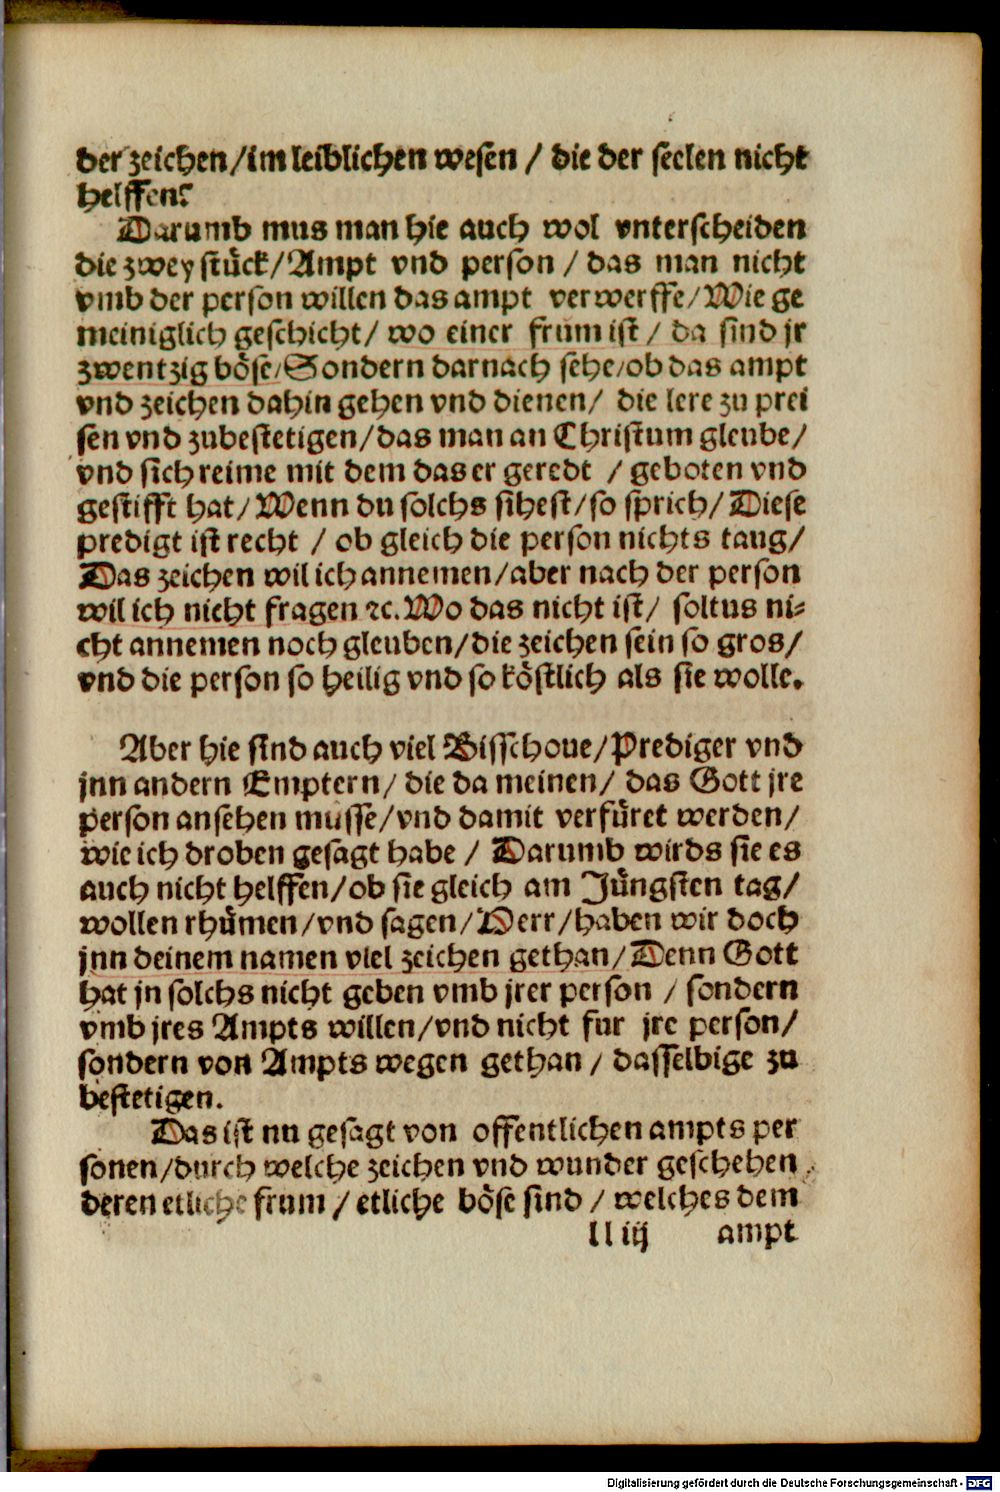 der zeichen/im leiblichen wesen / die der seelen nicht
helffen?
Darumb mus man hie auch wol vnterscheiden
die zwey stück/Ampt vnd person / das man nicht
vmb der person willen das ampt verwerffe/Wie ge
meiniglich geschicht/ wo einer frum ist / da sind jr
zwentzig böse/Sondern darnach sehe/ob das ampt
vnd zeichen dahin gehen vnd dienen/ die lere zu prei
sen vnd zubestetigen/das man an Christum gleube/
vnd sich reime mit dem das er geredt / geboten vnd
gestifft hat/Wenn du solchs sihest/so sprich/Diese
predigt ist recht / ob gleich die person nichts taug/
Das zeichen wil ich annemen/aber nach der person
wil ich nicht fragen ꝛc. Wo das nicht ist/ soltus ni⸗
cht annemen noch gleuben/die zeichen sein so gros/
vnd die person so heilig vnd so köstlich als sie wolle.
Aber hie sind auch viel Bisschoue/Prediger vnd
jnn andern Emptern/ die da meinen/ das Gott jre
person ansehen musse/vnd damit verfüret werden/
wie ich droben gesagt habe / Darumb wirds sie es
auch nicht helffen/ob sie gleich am Jüngsten tag/
wollen rhümen/vnd sagen/Herr/haben wir doch
jnn deinem namen viel zeichen gethan/Denn Gott
hat jn solchs nicht geben vmb jrer person / sondern
vmb jres Ampts willen/vnd nicht fur jre person/
sondern von Ampts wegen gethan / dasselbige zu
bestetigen.
Das ist nu gesagt von offentlichen ampts per
sonen/durch welche zeichen vnd wunder geschehen
deren etliche frum / etliche böse sind / welches dem
ll iij ampt
Digitalisierung gefördert durch die Deutsche Forschungsgemeinschaft - DFG